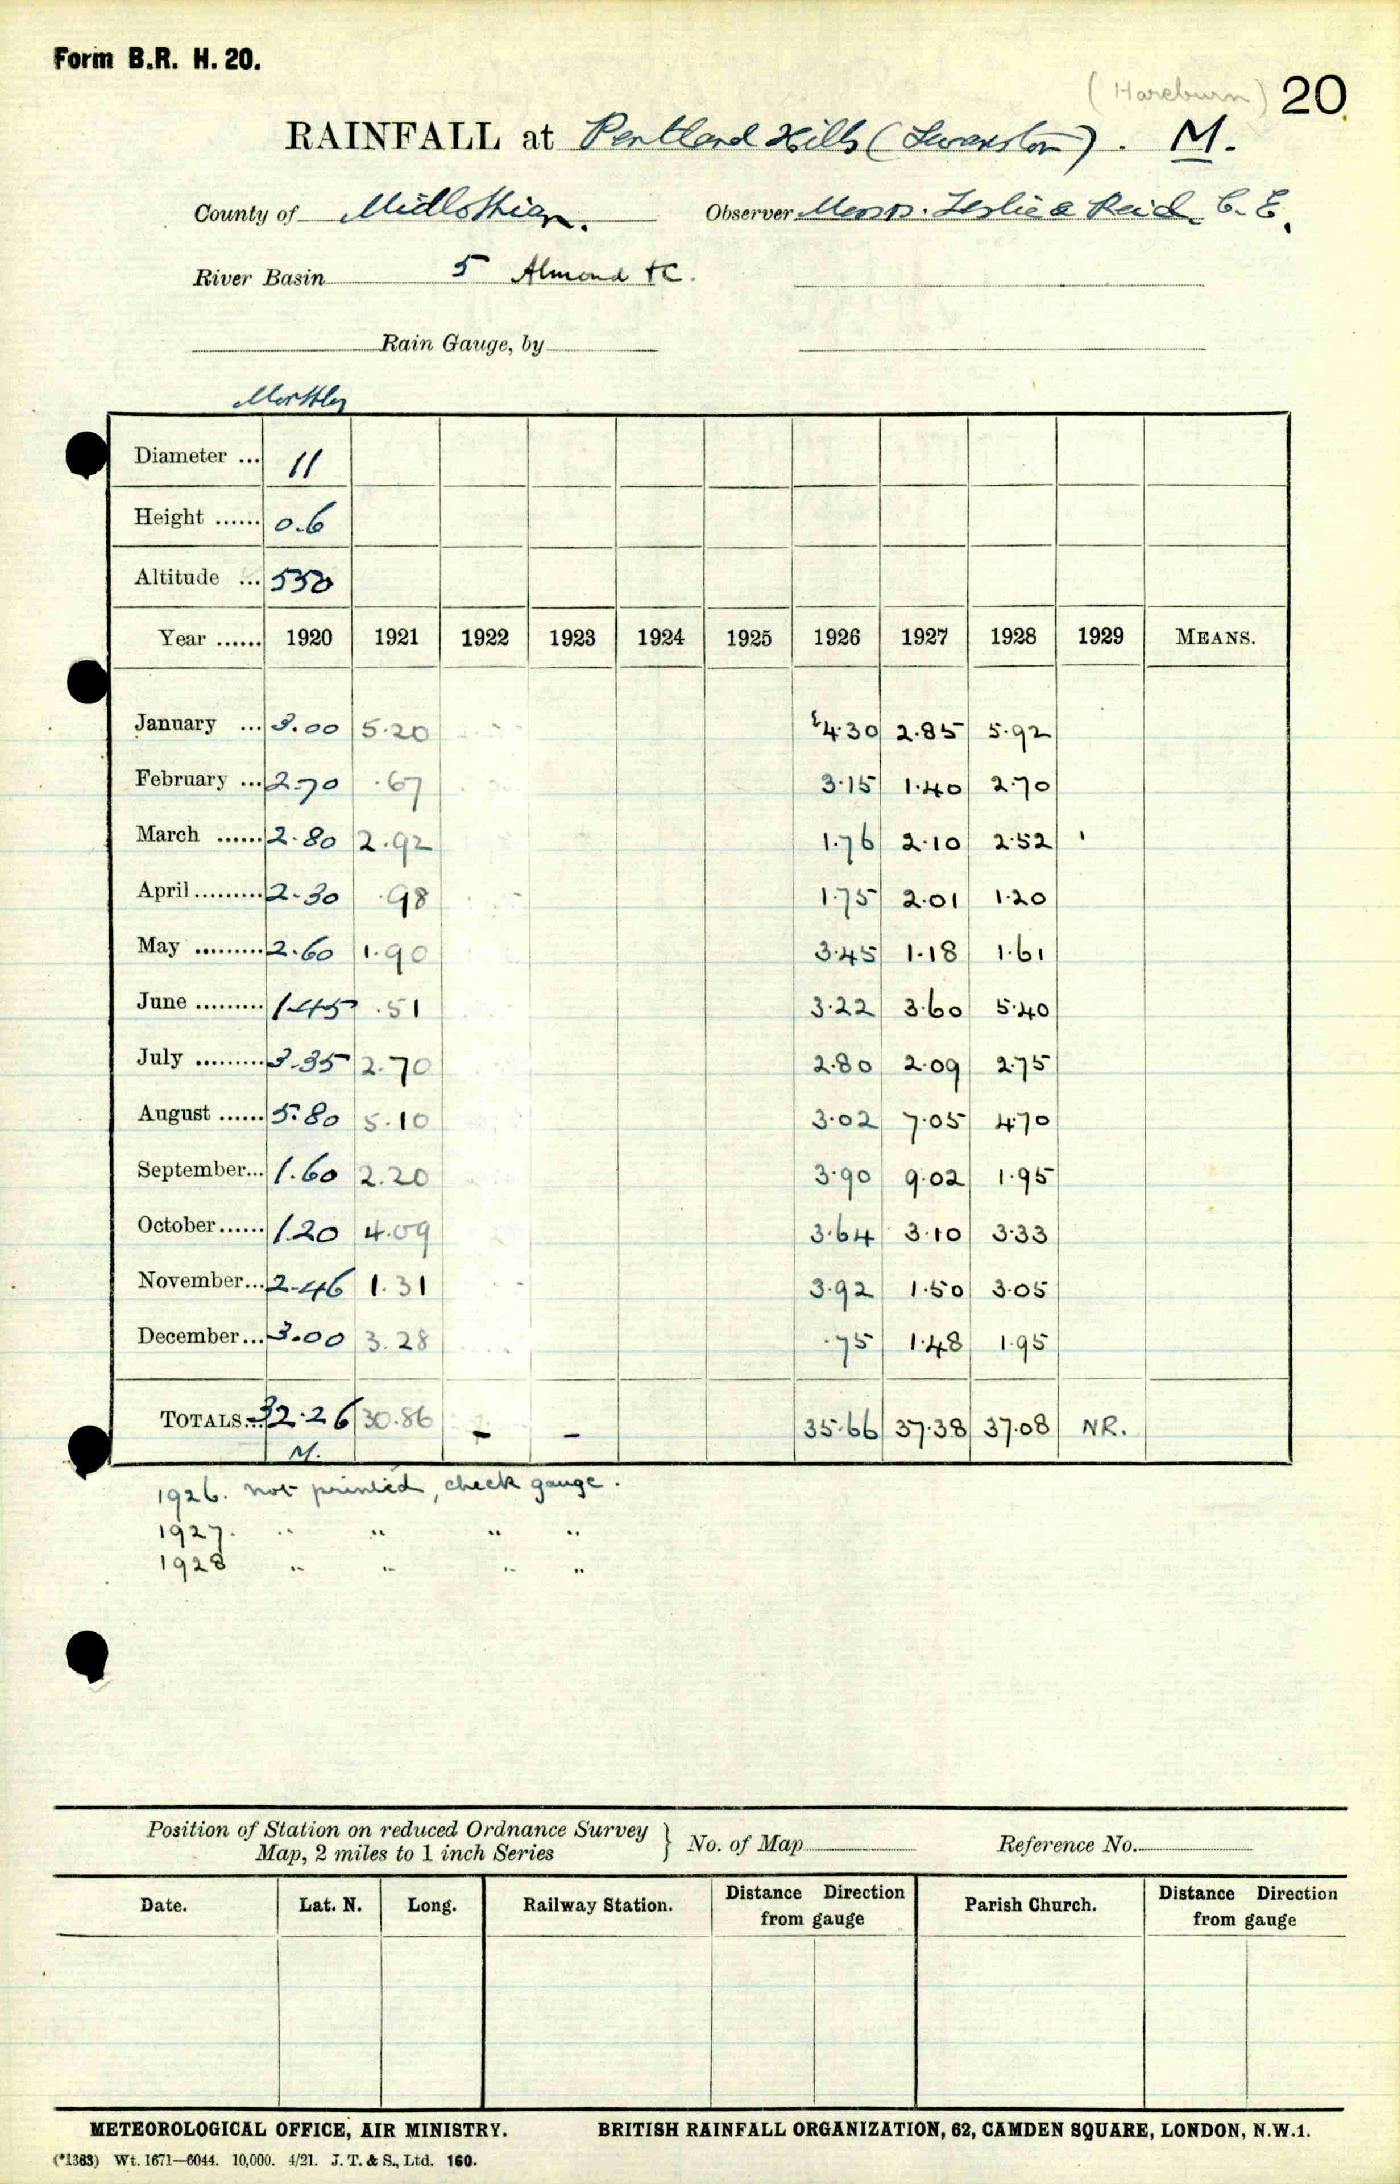 Form B.R. H. 20.
(Hareburn) 20
RAINFALL at Pentland Hills (Swanston). M.
County of Midlothian. Observer Messrs. Leslie & Reid, C.E.
River Basin 5 Almond &c.
Rain Gauge, by
Monthly
Diameter ... 11
Height ...... 0.6
Altitude ... 550
Year ...... 1920 1921 1922 1923 1924 1925 1926 1927 1928 1929 MEANS.
January ... 3.00 5.20 4.30 2.85 5.92
February ... 2.70 .67 3.15 1.40 2.70
March ...... 2.80 2.92 1.76 2.10 2.52
April ......... 2.30 .98 1.75 2.01 1.20
May ......... 2.60 1.90 3.45 1.18 1.61
June ......... 1.45 .51 3.22 3.60 5.40
July ......... 3.35 2.70 2.80 2.09 2.75
August ...... 5.80 5.10 3.02 7.05 4.70
September... 1.60 2.20 3.90 9.02 1.95
October ...... 1.20 4.09 3.64 3.10 3.33
November... 2.46 1.31 3.92 1.50 3.05
December... 3.00 3.28 .75 1.48 1.95
TOTALS... 32.26 30.86 - - 35.66 37.38 37.08 NR.
M.
1926. not printed, check gauge.
1927. " " " "
1928 " " " "
Position of Station on reduced Ordnance Survey
Map, 2 miles to 1 inch Series } No. of Map Reference No.
Date. Lat. N. Long. Railway Station. Distance Direction from gauge Parish Church. Distance Direction from gauge
METEOROLOGICAL OFFICE, AIR MINISTRY. BRITISH RAINFALL ORGANIZATION, 62, CAMDEN SQUARE, LONDON, N.W.1.
(*1363) Wt. 1671—6044. 10,000. 4/21. J. T. & S., Ltd. 160.